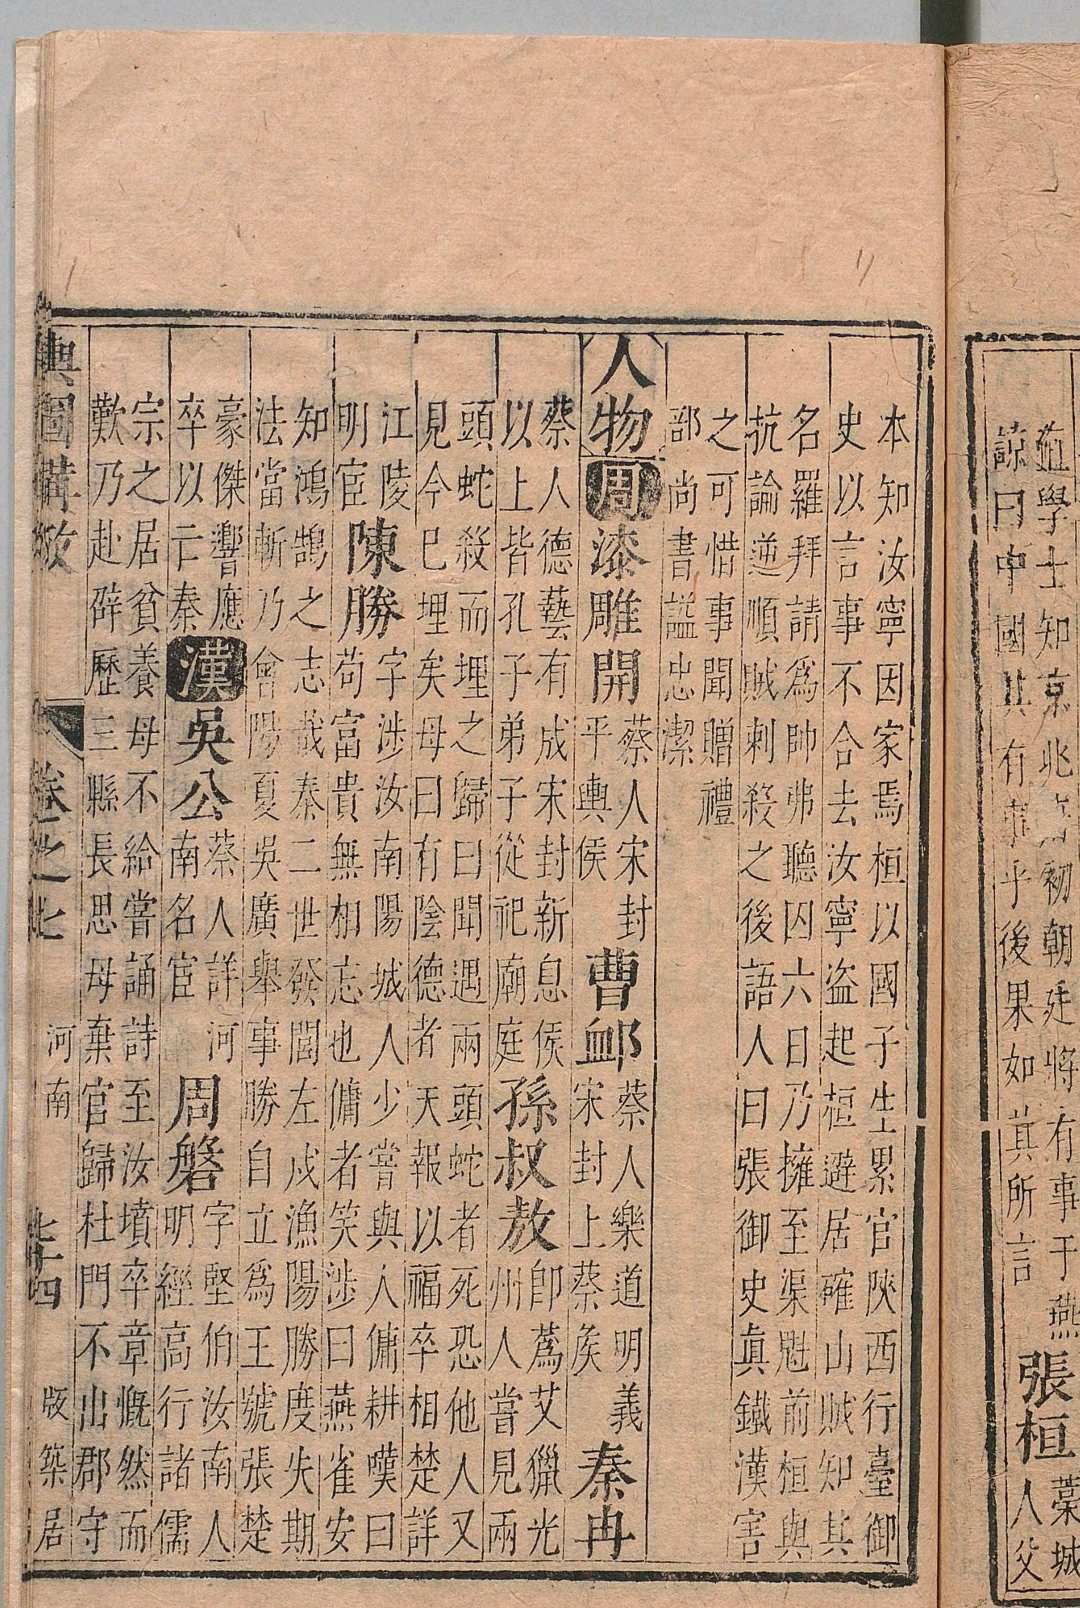 直學士知京兆府初朝廷將有事于燕
諒曰中國其有事乎後果如其所言
張桓
藁城
人父
本知汝寧因家焉桓以國子生累官陝西行臺御
史以言事不合去汝寧盜起桓避居確山賊知其
名羅拜請爲帥弗聽囚六日乃擁至渠魁前桓與
抗論逆順賊刺殺之後語人曰張御史眞鐵漢害
之可惜事聞贈禮
部尚書諡忠潔
人物 周 漆雕開
蔡人宋封
平輿侯
曹䘏
蔡人樂道明義
宋封上蔡矦
秦冉
蔡人德藝有成宋封新息矦
以上皆孔子弟子從祀廟庭
孫叔敖
卽蔿艾獵光
州人嘗見兩
頭蛇殺而埋之歸曰聞遇兩頭蛇者死恐他人又
見今已埋矣母曰有陰德者天報以福卒相楚詳
江陵
明宦
陳勝
字涉汝南陽城人少嘗與人傭耕嘆曰
苟富貴無相忘也傭者笑涉曰燕雀安
知鴻鵠之志哉秦二世發閭左戍漁陽勝度失期
法當斬乃會陽夏吳廣舉事勝自立爲王號張楚
豪傑響應
卒以亡秦
漢 吳公
蔡人詳河
南名宦
周磐
字堅伯汝南人
明經高行諸儒
宗之居貧養母不給嘗誦詩至汝墳卒章慨然而
歎乃赴辟歷三縣長思母棄官歸杜門不出郡守
輿圖備攷 卷之七 河南 七十四 版築居